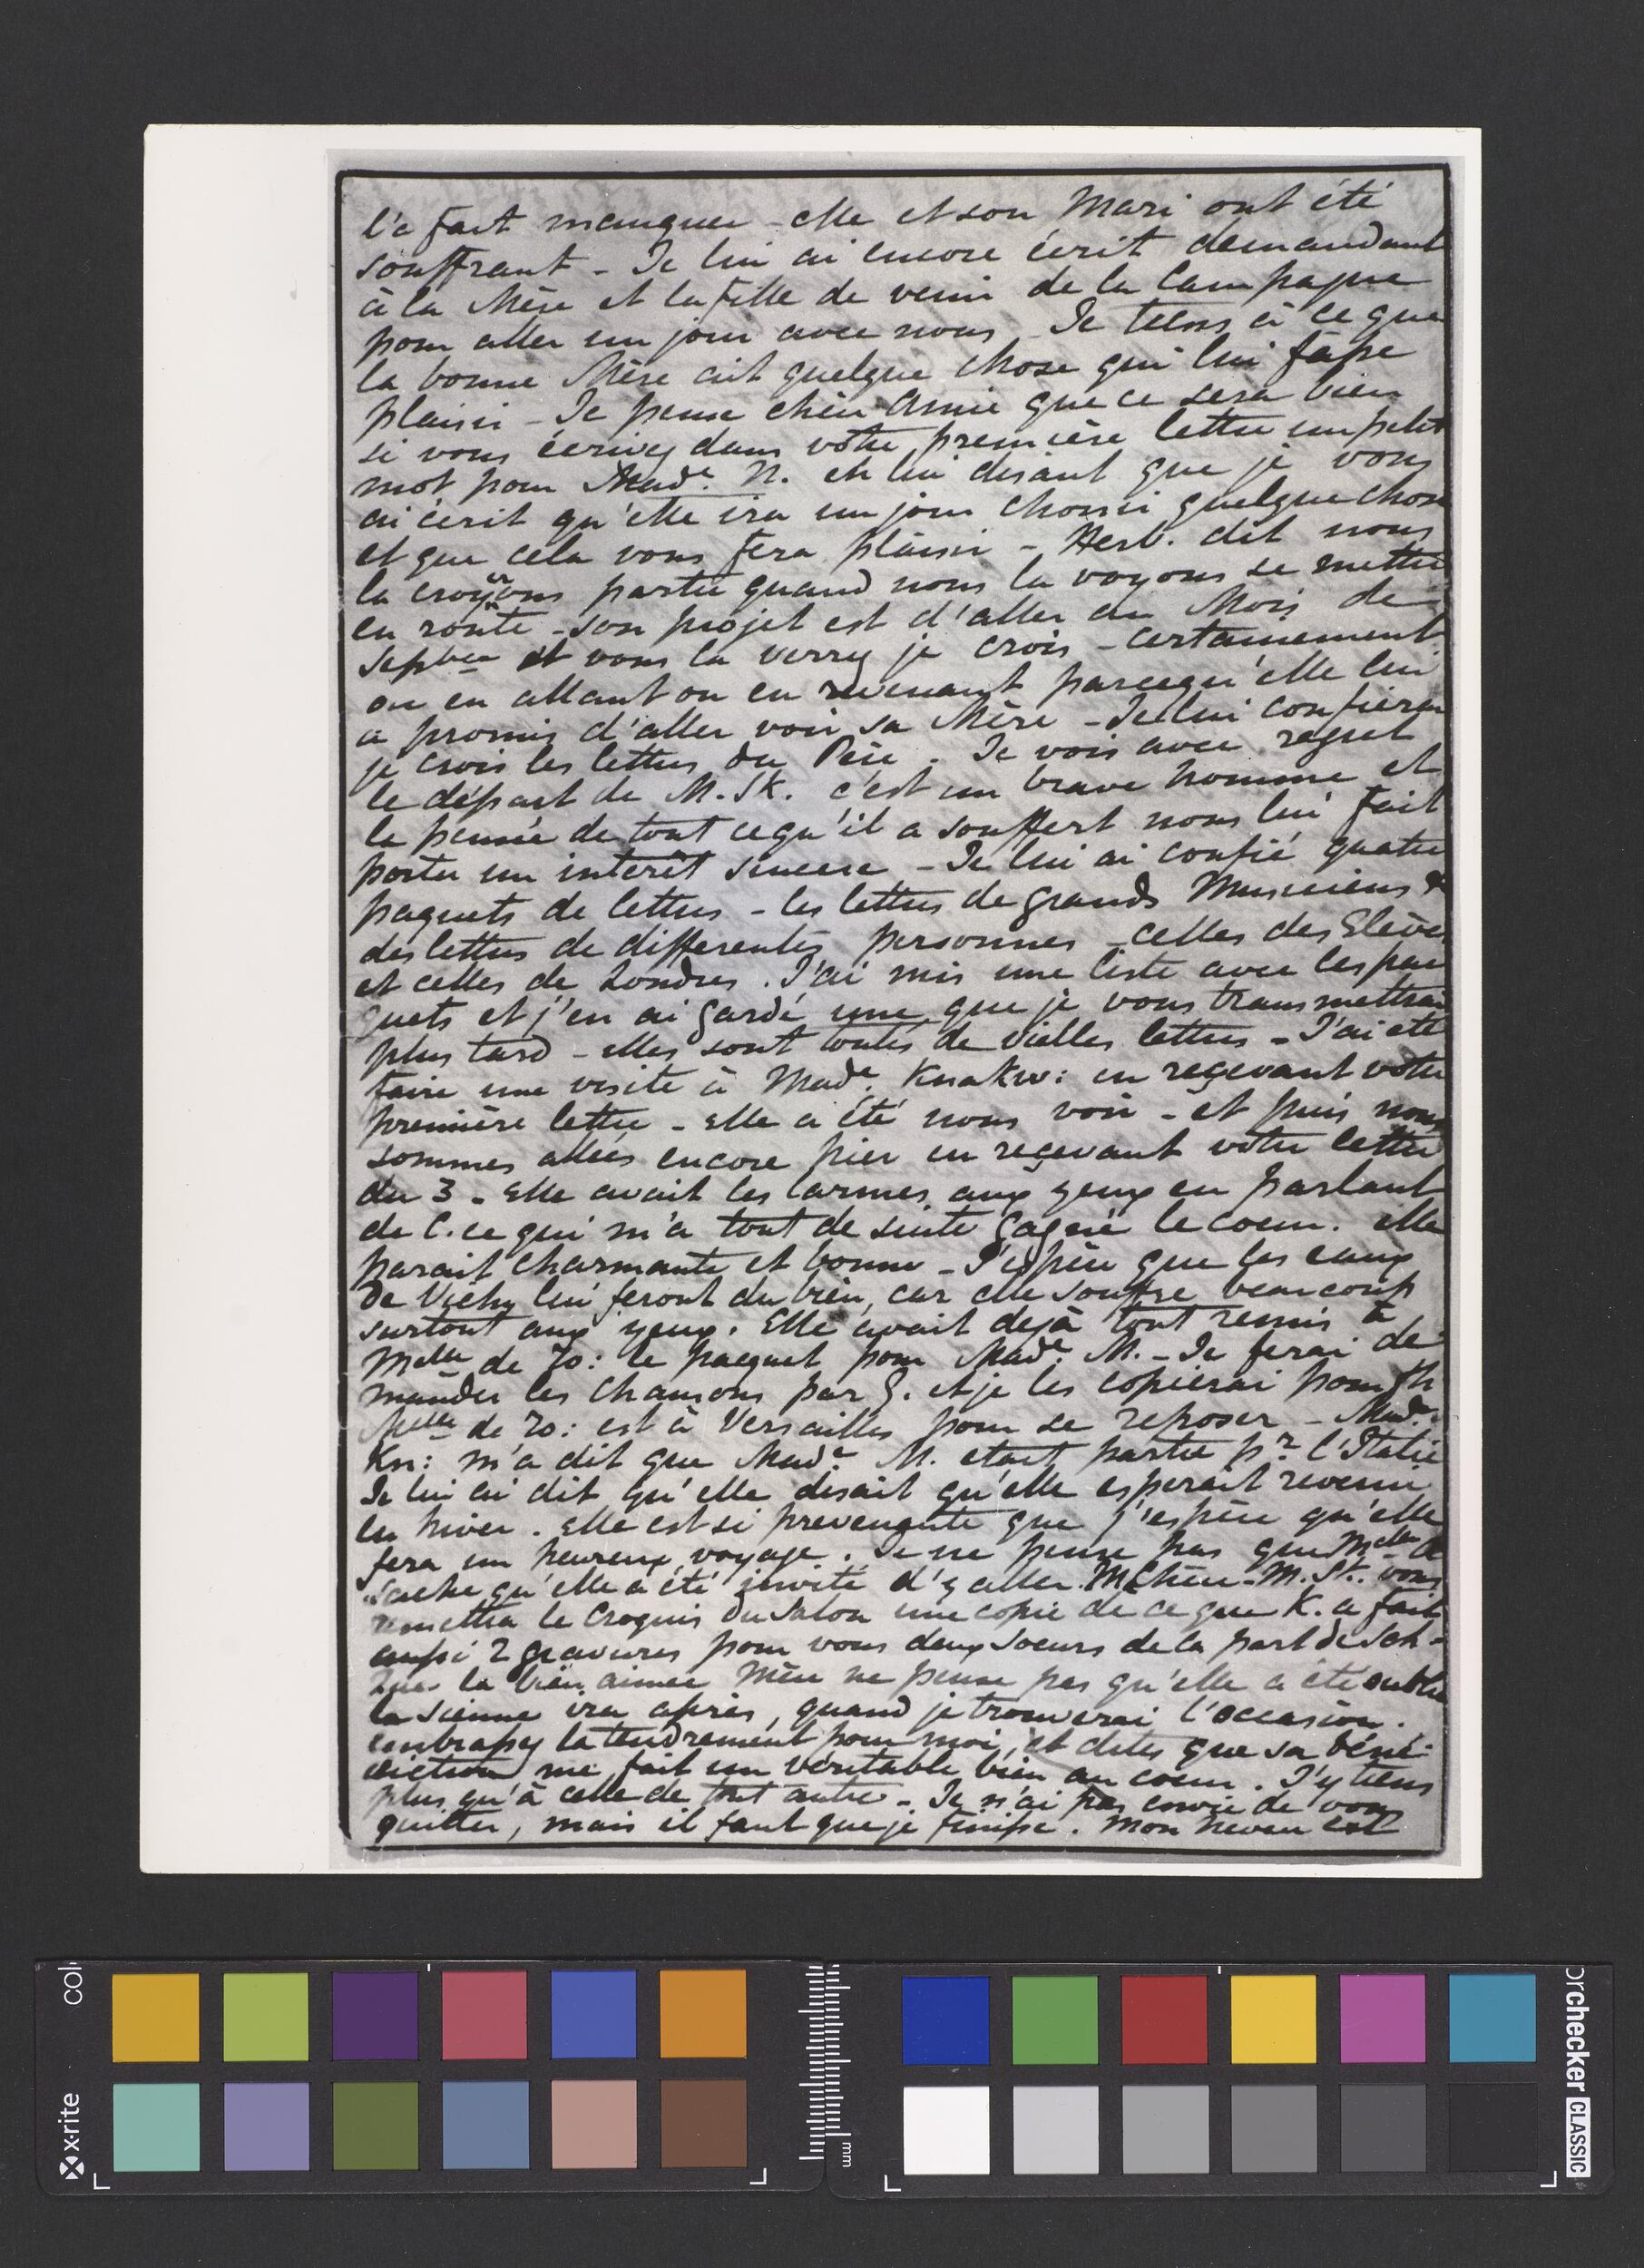 l'a fait manquer - elle et son Mari ont été
souffrant - Je lui ai encore écrit demandant
à la Mère et la fille de venir de la Campagne
pour aller un jour avec nous - Je tiens à ce que
la bonne Mère ait quelque chose qui lui fasse
plaisir - Je pense chère Amie que ce sera bien
si vous écrivez dans votre première lettre un petit
mot pour Made. N. en lui disant que je vous
ai écrit qu'elle ira un jour choisir quelque chose
et que cela vous fera plaisir - Herb. dit nous
la croyons partie quand nous la voyons se mettre
en route - son projet est d'aller au Mois de
Septbre et vous la verrez je crois - certainement
ou en allant ou en revenant parcequ'elle lui
a promis d'aller voir sa Mère - Je lui confierai
je crois les lettres du Père. Je vois avec regret
le départ de M. St. c'est un brave homme et
la pensée de tout ce qu'il a souffert nous lui fait
porter un interêt sincere - Je lui ai confié quatre
paquets de lettres - les lettres de grands Musiciens &
des lettres de differentes personnes - celles des Elèves
et celles de Londres. J'ai mis une liste avec les pac
quets et j'en ai gardé une que je vous transmettrai
plus tard - elles sont toutes de vielles lettres - J'ai eté
faire une visite à Made. Knakw: en reçevant votre
première lettre - Elle a été nous voir - et puis nous
sommes allées encore hier en reçevant votre lettre
du 3 - Elle avait les larmes aux yeux en parlant
de C. ce qui m'a tout de suite gagné le coeur. elle
parait charmante et bonne - J'espère que les eaux
de Vichy lui feront du bien, car elle souffre beaucoup
surtout aux yeux. Elle avait dejà tout remis à
Melle de Ro: le pacquet pour Made M. - Je ferai de
mander les Chansons par G. et je les copierai pour
Melle de Ro: est à Versailles pour se reposer - Made.
Kn: m'a dit que Made M. etait partie pr l'Italie
Je lui ai dit qu'elle disait qu'elle esperait revenir
en hiver. Elle est si prevenante que j'espère qu'elle
fera un heureux voyage. Je ne pense pas que Melle
sache qu'elle a été invité d'y aller. M. St. vous
remettra le Croquis du Salon une copie de ce que K. a fait
aussi 2 gravures pour vous deux soeurs de la part de Sch -
Que la bien aimée Mère ne pense pas qu'elle a été oubliée
la sienne ira après, quand je trouverai l'occasion.
embrassez la tendrement pour moi, et dites que sa béné-
diction me fait un véritable bien au coeur. J'y tiens
plus qu'à celle de tout autre - Je n'ai pas envie de vous
quitter, mais il faut que je finisse. Mon neveu est
x-rite
colorchecker CLASSIC
mm